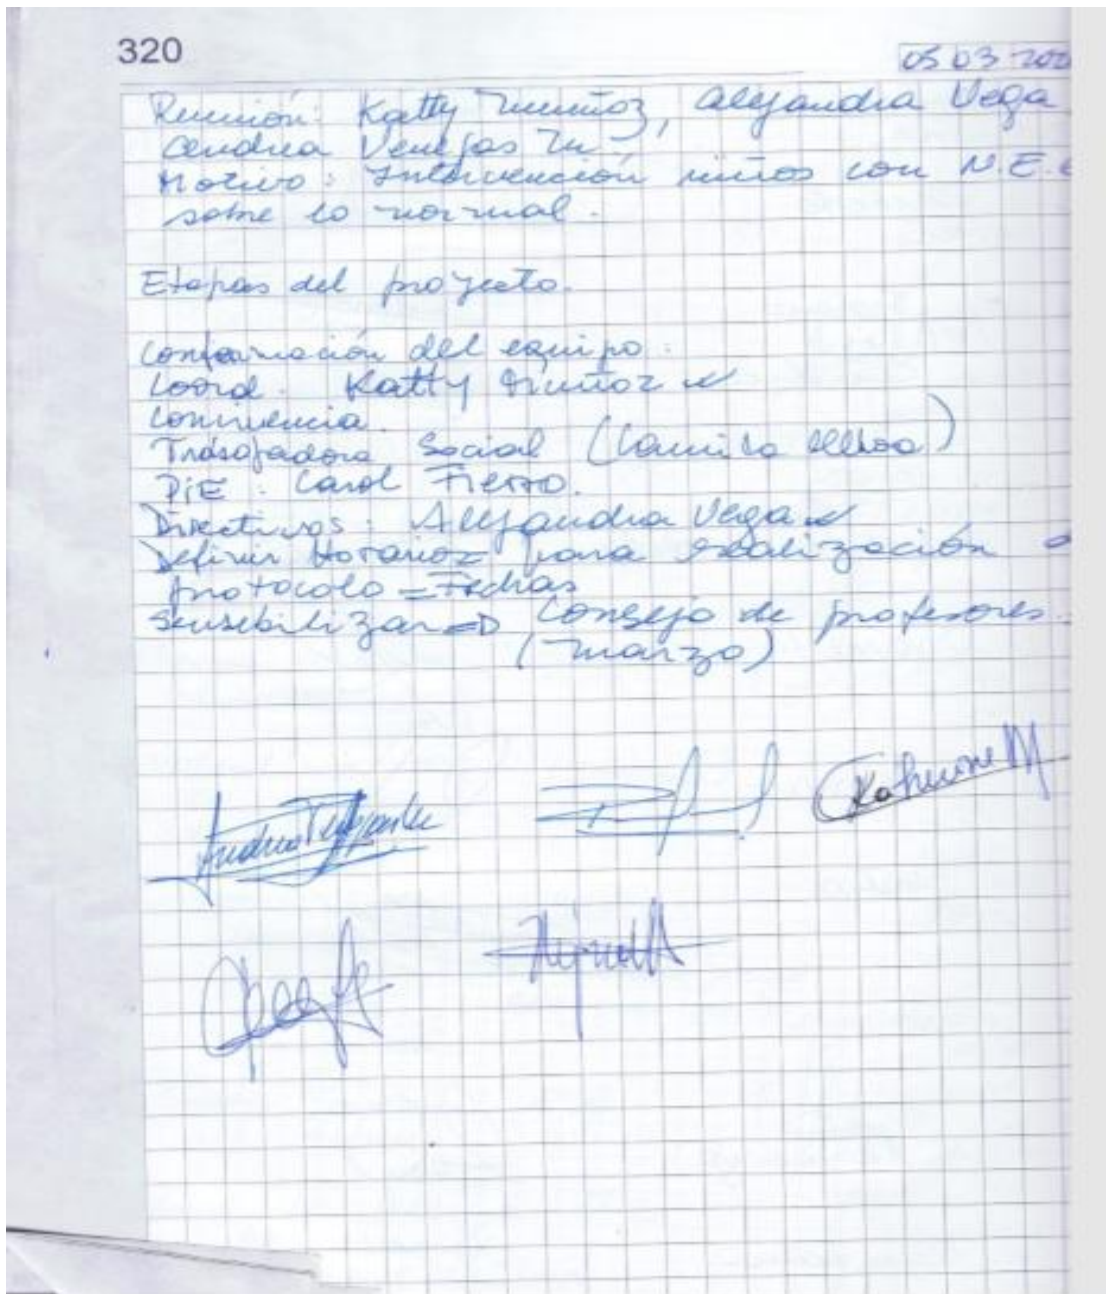 320
05 03 202
Reunión: Katty Muñoz, Alejandra Vega
Andrea Venegas M
Motivo: Intervención niños con N.E.E
sobre lo normal.
Etapas del proyecto.
Conformación del equipo:
Coord. Katty Muñoz ✓
Convivencia.
Trabajadora Social (Camila Ulloa)
PiE: Carol Fierro.
Directivos: Alejandra Vega ✓
Definir Horarios para realización
protocolo = Fechas
Sensibilizar => Consejo de profesores.
(marzo)
Katherine M